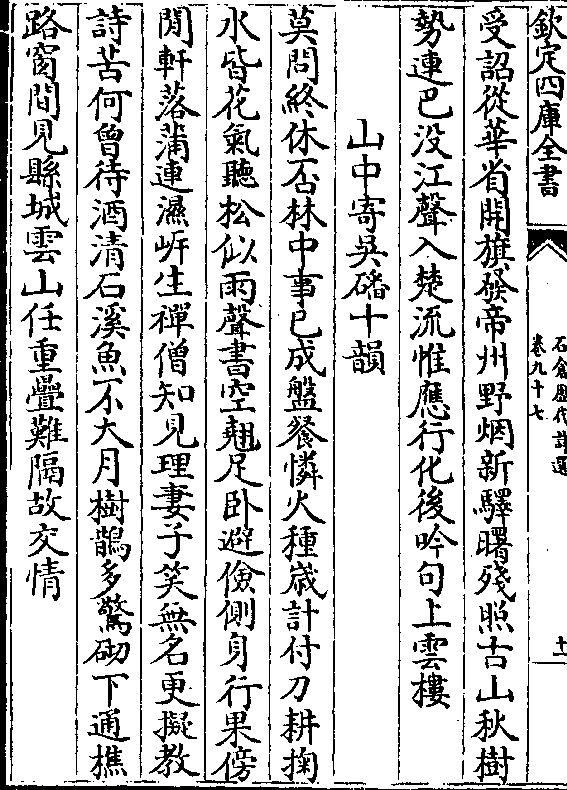 欽定四庫全書
石倉歷代詩選
卷九十七
十一
受詔從華省開旗發帝州野烟新驛曙殘照古山秋樹
勢連巴没江聲入楚流惟應行化後吟句上雲樓
山中寄吳磻十韻
莫問終休否林中事已成盤餐憐火種歲計付刀耕掬
水昏花氣聽松似雨聲書空翹足卧避儉側身行果傍
閒軒落蒲連濕岍生禪僧知見理妻子笑無名更擬教
詩苦何曾待酒清石溪魚不大月樹鵲多驚砌下通樵
路窗間見縣城雲山任重疊難隔故交情